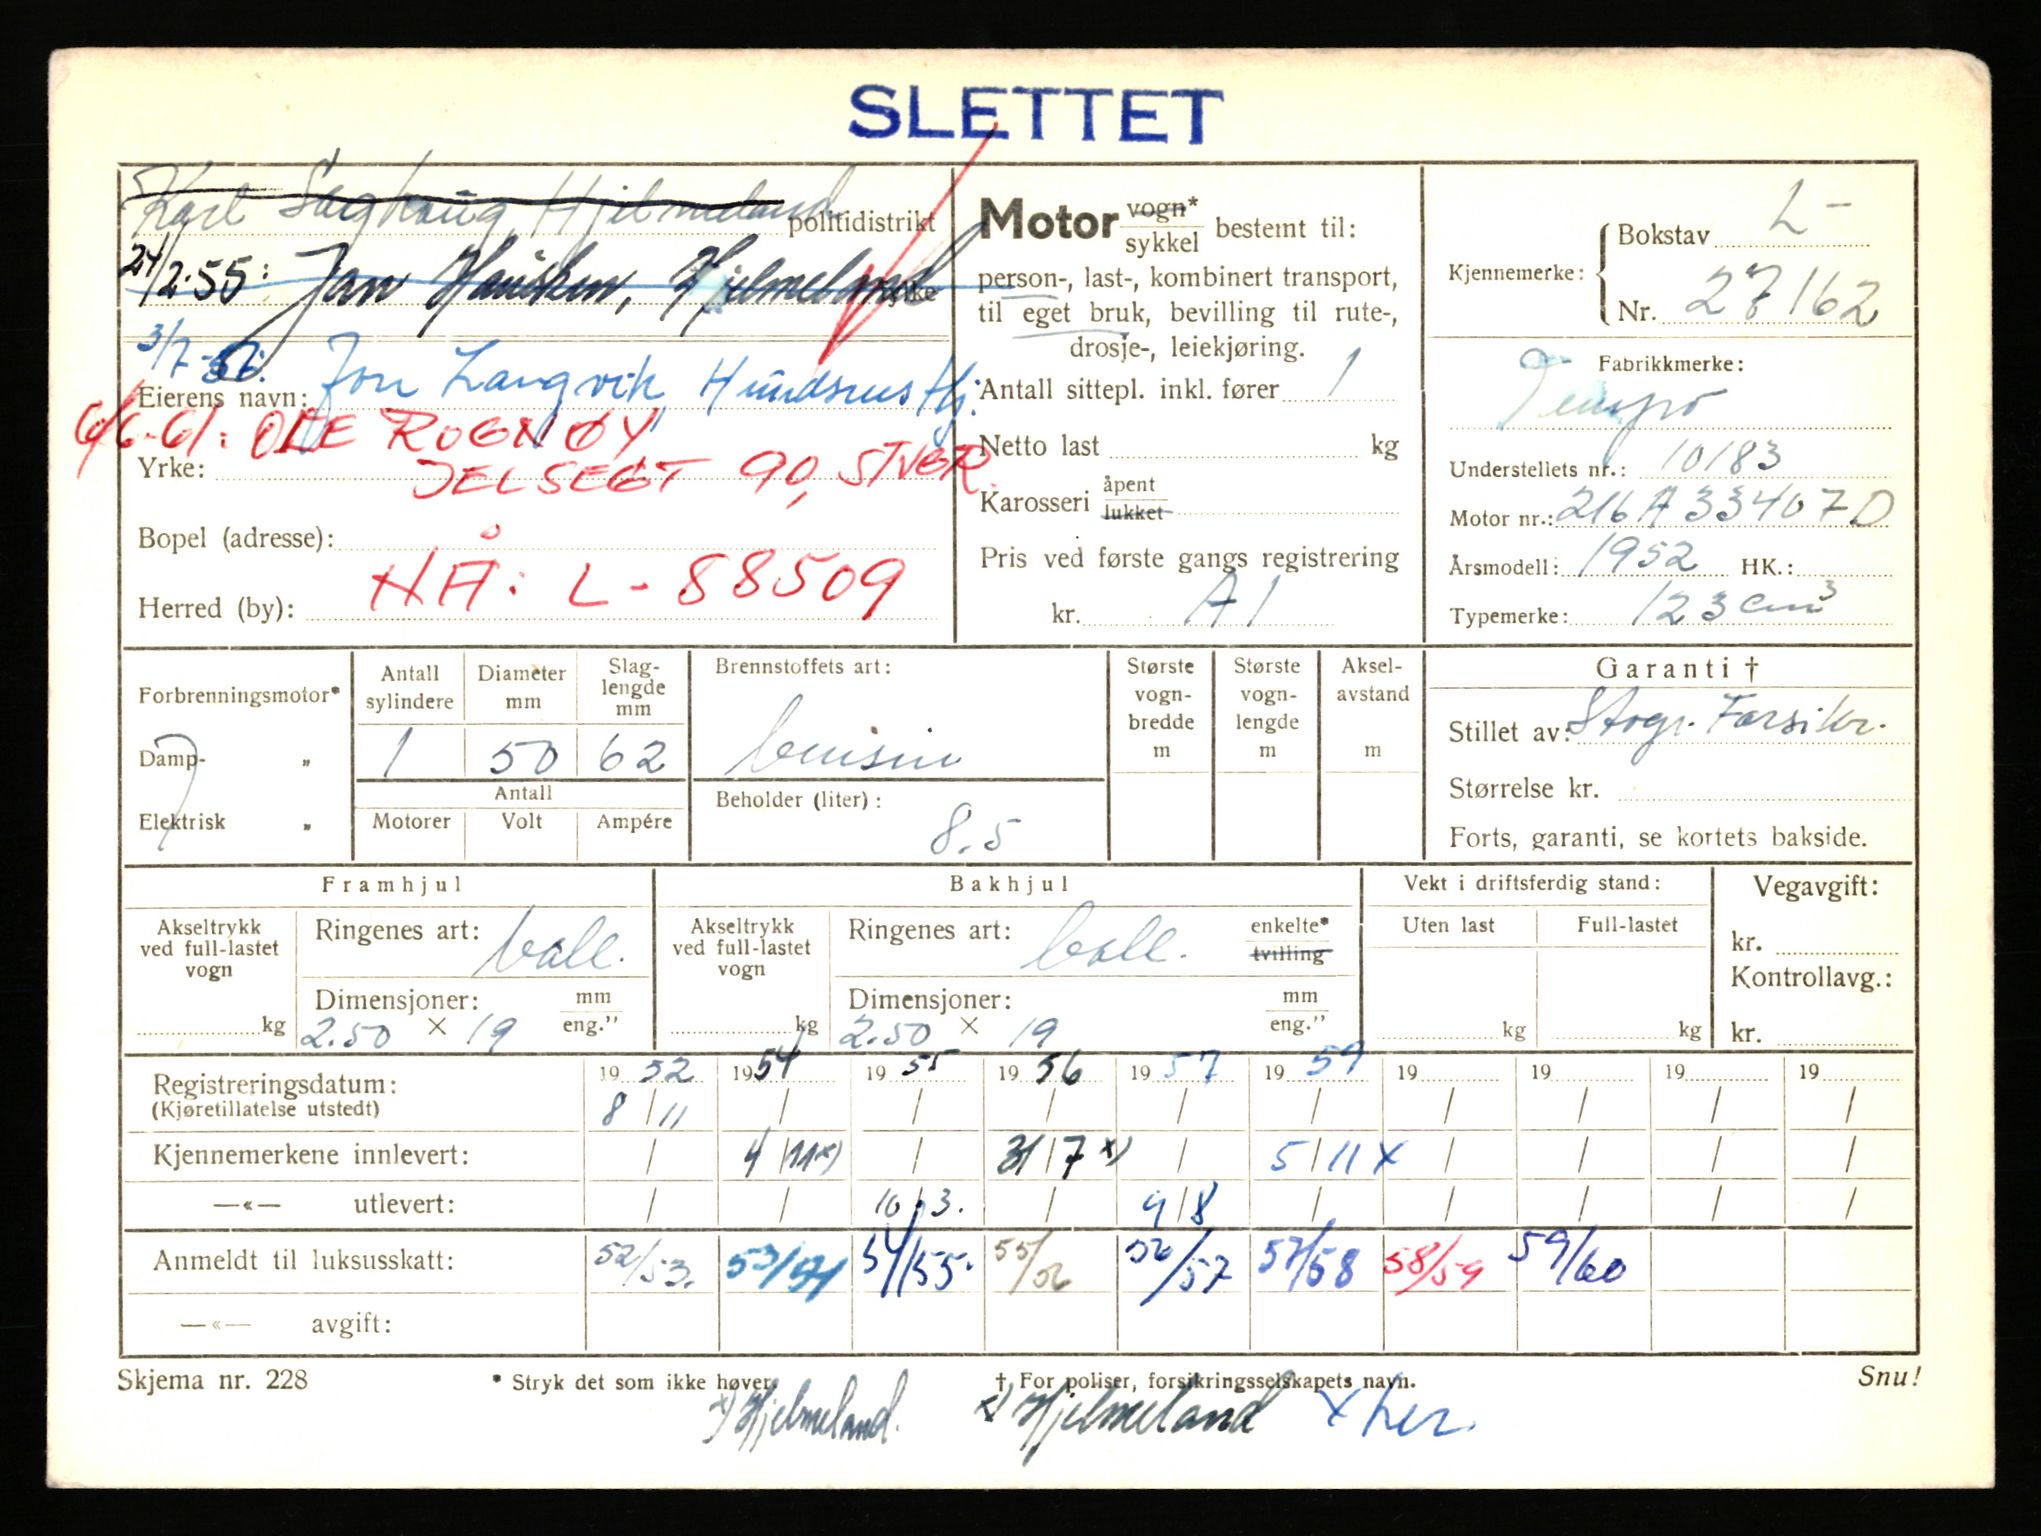 SLETTET
Karl Hjelmeland politidistrikt
24/2-55: Jan Hausken, Hjelmeland yrke
3/7-56: Jon Langvik Hundsnes Hj.
Eierens navn:
6/6-61: OLE ROGNØY
Yrke: JELSEGT 90, STVGR.
Bopel (adresse):
Herred (by): NÅ: L-88509
Motor vogn* sykkel bestemt til:
person-, last-, kombinert transport,
til eget bruk, bevilling til rute-,
drosje-, leiekjøring.
Antall sittepl. inkl. fører 1
Netto last kg
Karosseri åpent lukket
Pris ved første gangs registrering
kr. A1
Kjennemerke: Bokstav L-
Nr. 27162
Fabrikkmerke:
Tempo
Understellets nr.: 10183
Motor nr.: 216A33407D
Årsmodell: 1952 HK.:
Typemerke: 123 cm3
Forbrenningsmotor*
Damp- "
Elektrisk "
Antall sylindere Diameter mm Slag-lengde mm
1 50 62
Antall
Motorer Volt Ampére
Brennstoffets art:
bensin
Beholder (liter):
8.5
Største vogn-bredde m
Største vogn-lengde m
Aksel-avstand m
Garanti †
Stillet av: Stogr. Forsikr.
Størrelse kr.
Forts, garanti, se kortets bakside.
Framhjul
Akseltrykk ved full-lastet vogn
kg
Ringenes art: ball.
Dimensjoner: mm eng."
2.50 × 19
Bakhjul
Akseltrykk ved full-lastet vogn
kg
Ringenes art: ball. enkelte* tvilling
Dimensjoner: mm eng."
2.50 × 19
Vekt i driftsferdig stand:
Uten last Full-lastet
kg kg
Vegavgift:
kr.
Kontrollavg.:
kr.
Registreringsdatum: 1952 1954 1955 1956 1957 1959 19 19 19 19
(Kjøretillatelse utstedt) 8/11 / / / / / / / / /
Kjennemerkene innlevert: / 4/11x) / 31/7 x) / 5/11 x / / / /
—«— utlevert: / / 10/3. / 9/8 / / / / /
Anmeldt til luksusskatt: 52/53. 53/54 54/55. 55/56 56/57 57/58 58/59 59/60
—«— avgift:
Skjema nr. 228 * Stryk det som ikke høver. † For poliser, forsikringsselskapets navn. Snu!
x) Hjelmeland. x) Hjelmeland x her